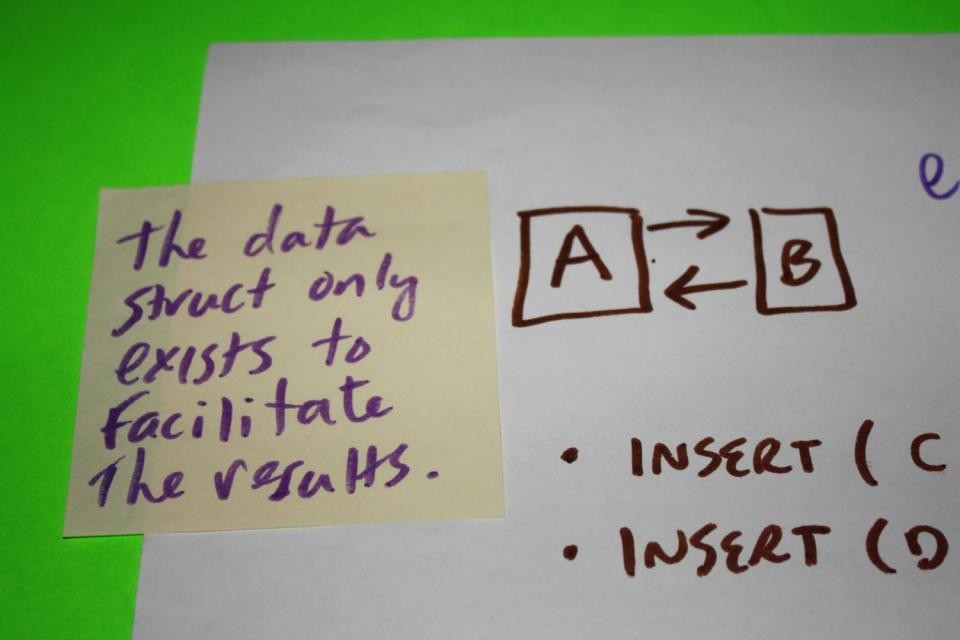 The data
struct only
exists to
facilitate
The results.
e
A B
• INSERT ( C
• INSERT ( D